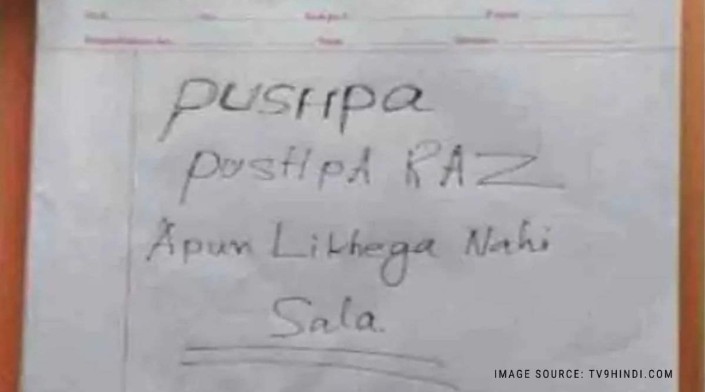 PUSHPA
PUSHPA RAZ
Apun Likhega Nahi
Sala.
IMAGE SOURCE: TV9HINDI.COM